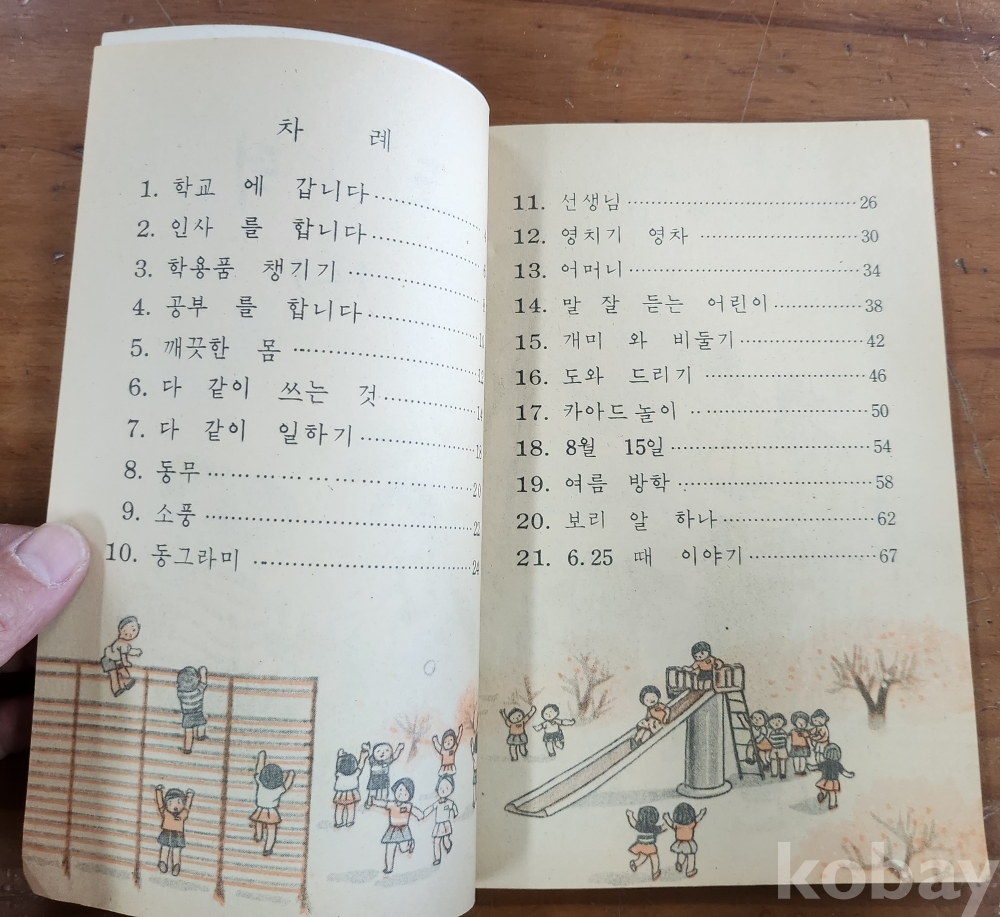 차 례
1. 학교 에 갑니다
2. 인사 를 합니다
3. 학용품 챙기기
4. 공부 를 합니다
5. 깨끗한 몸 12
6. 다 같이 쓰는 것 14
7. 다 같이 일하기 18
8. 동무 20
9. 소풍 22
10. 동그라미 24
11. 선생님 26
12. 영치기 영차 30
13. 어머니 34
14. 말 잘 듣는 어린이 38
15. 개미 와 비둘기 42
16. 도와 드리기 46
17. 카아드 놀이 50
18. 8월 15일 54
19. 여름 방학 58
20. 보리 알 하나 62
21. 6.25 때 이야기 67
kobay